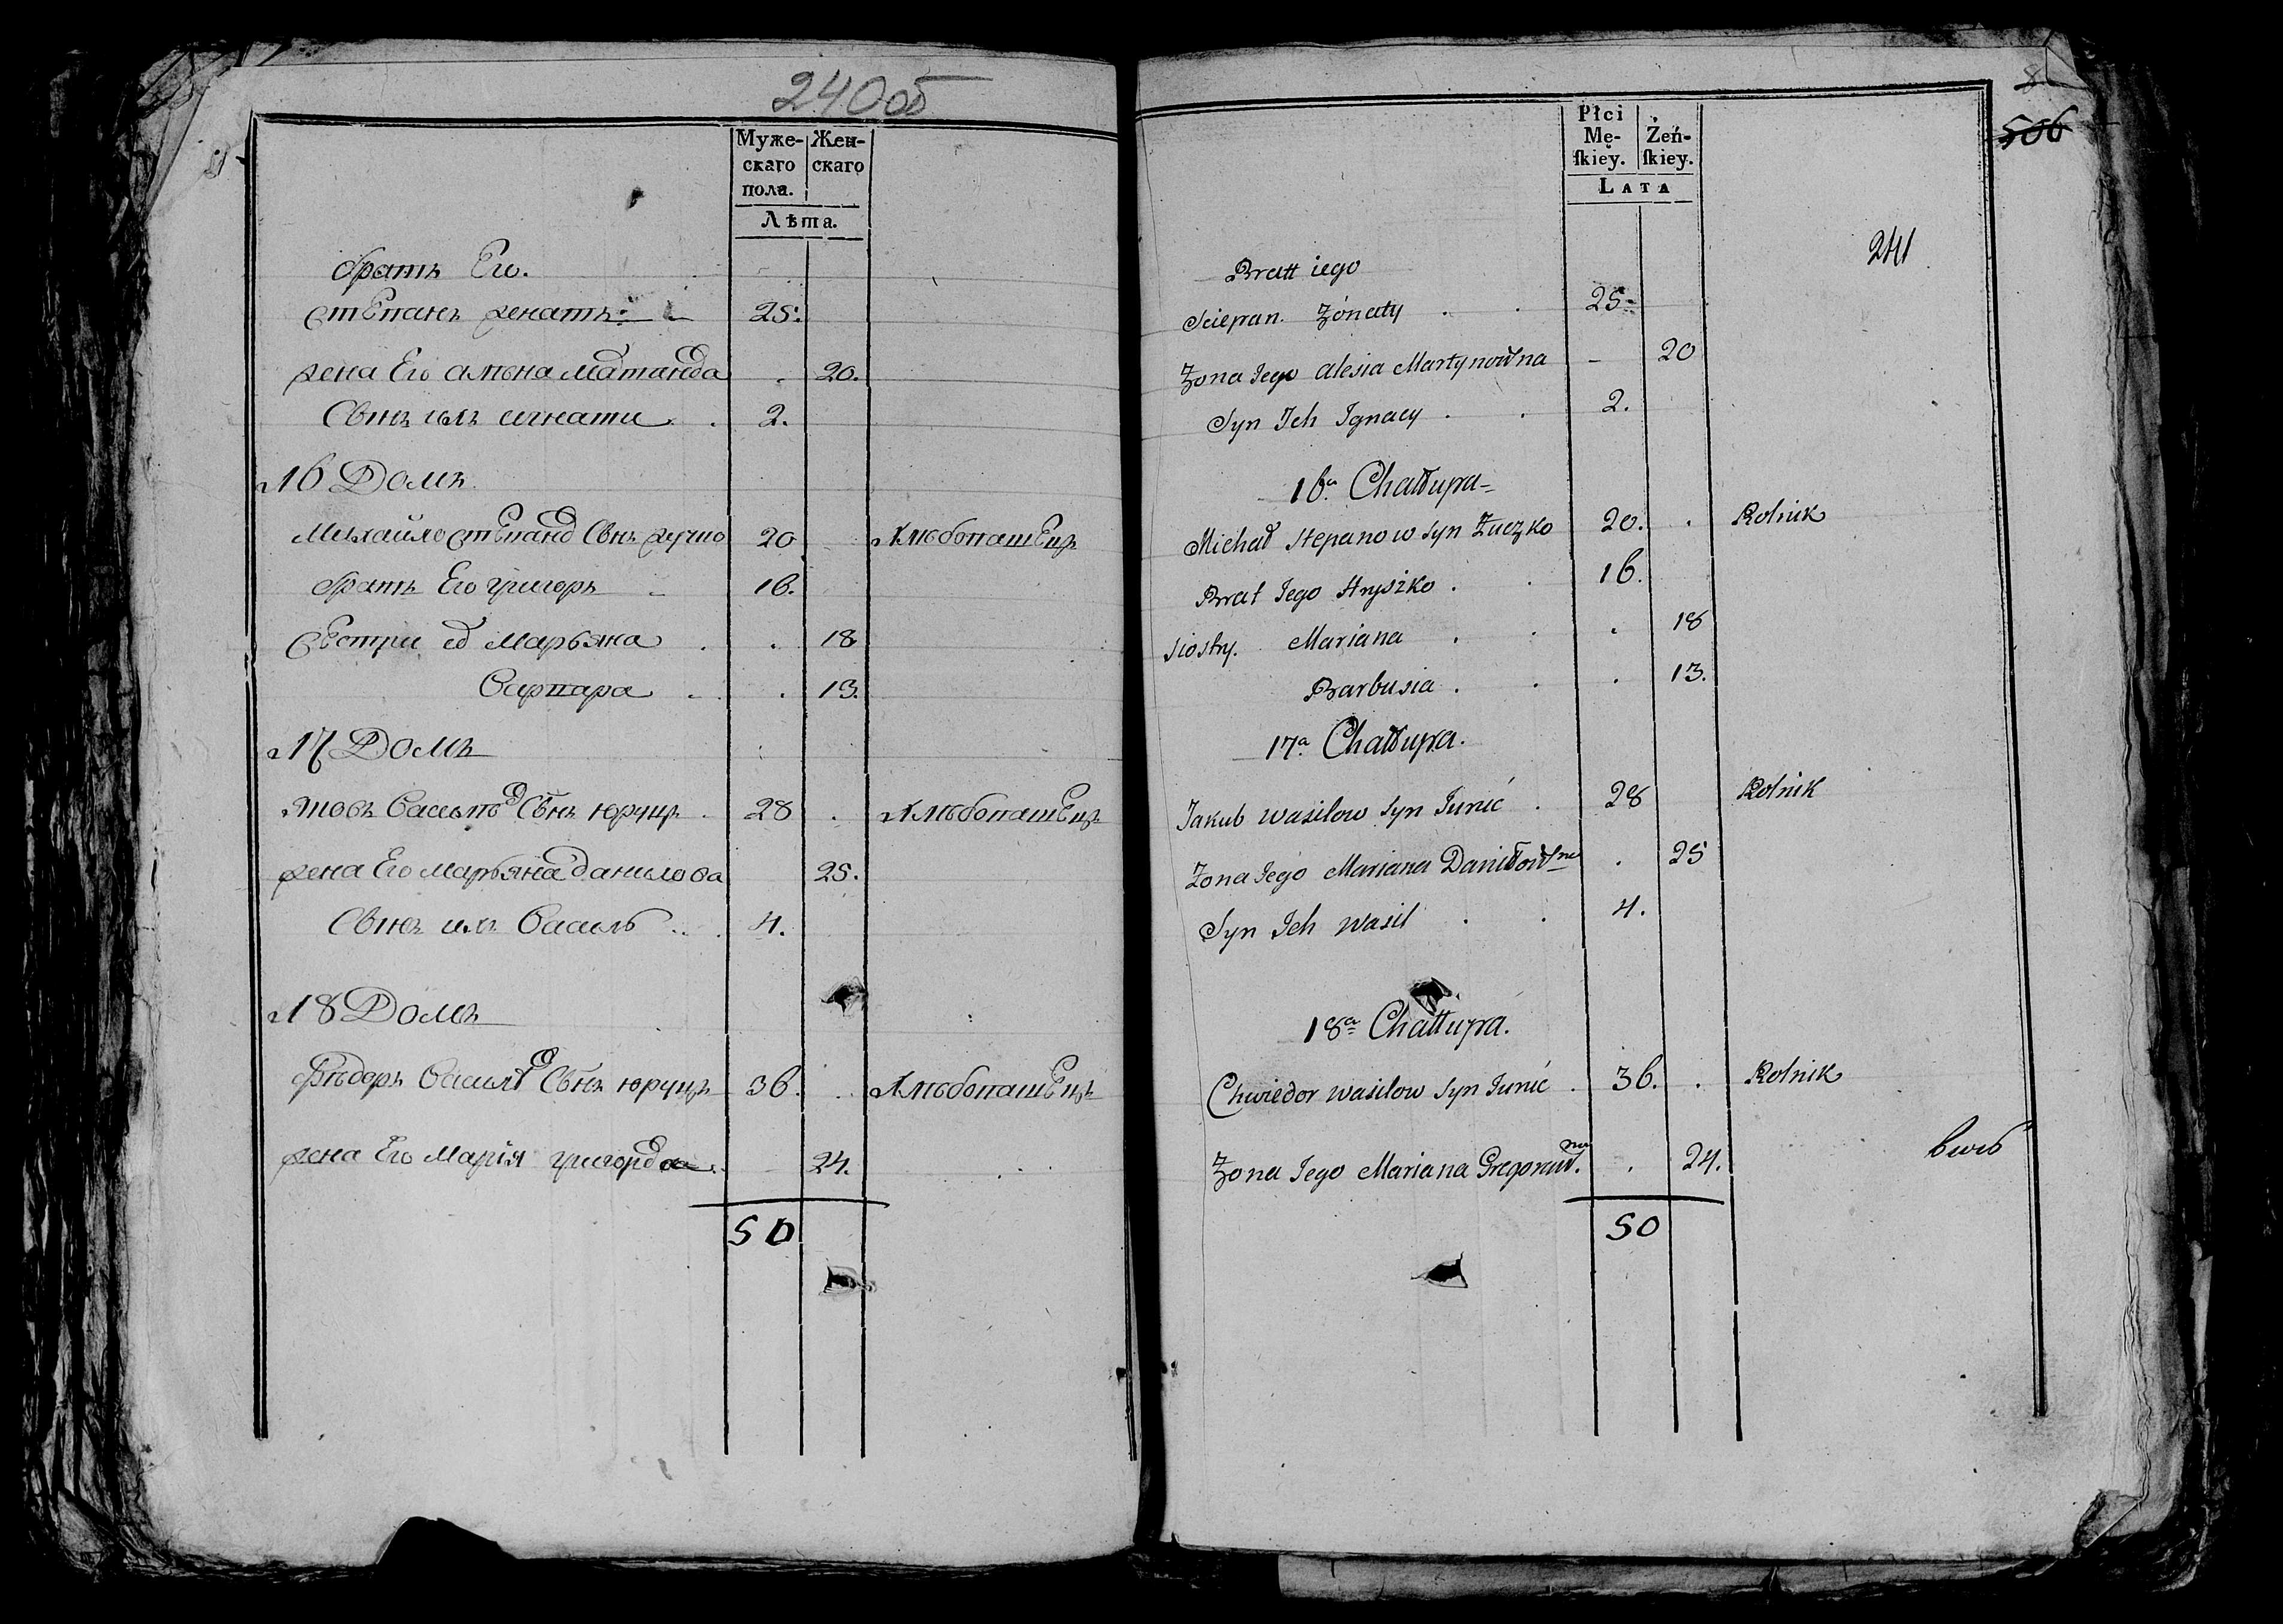 240об
Муже-
скаго
пола.
Жен-
скаго
Лѣта.
братъ Его.
степанъ женатъ 25.
жена Его 20.
Сынъ ихъ игнати 2.
16 Домъ
Михайло степано Сынъ жучко 20 хлѣбопашецъ
братъ Его григоръ 16.
Сестри Марьяна 18
Варвара 13.
17 Домъ
Яковъ Васило Сынъ юрчиц 28 хлѣбопашецъ
жена Его марьяна данилова 25.
Сынъ ихъ Василь 4.
18 Домъ
Фѣдоръ Сынъ юрчиц 36. хлѣбопашецъ
жена Его Марія 24.
50
8
506
Płci
Mę-
ſkiey.
Żeń-
ſkiey.
Lata
241
Bratt iego
Sciepan. Żonaty 25
Żona Jego Alesia Martynowna 20
Syn Ich Ignacy 2.
16a Chałupa
Michał Stepanow syn Żuczko 20. Rolnik
Brat Jego Hryszko 16.
Siostry. Mariana 18
Barbusia 13.
17a Chałupa.
Jakub Wasilow syn Junić 28 Rolnik
Żona Jego Mariana Daniłowna 25
Syn Ich Wasil 4.
18a Chałupa.
Chwiedor Wasilow syn Junić 36. Rolnik
Żona Jego Mariana 24.
50